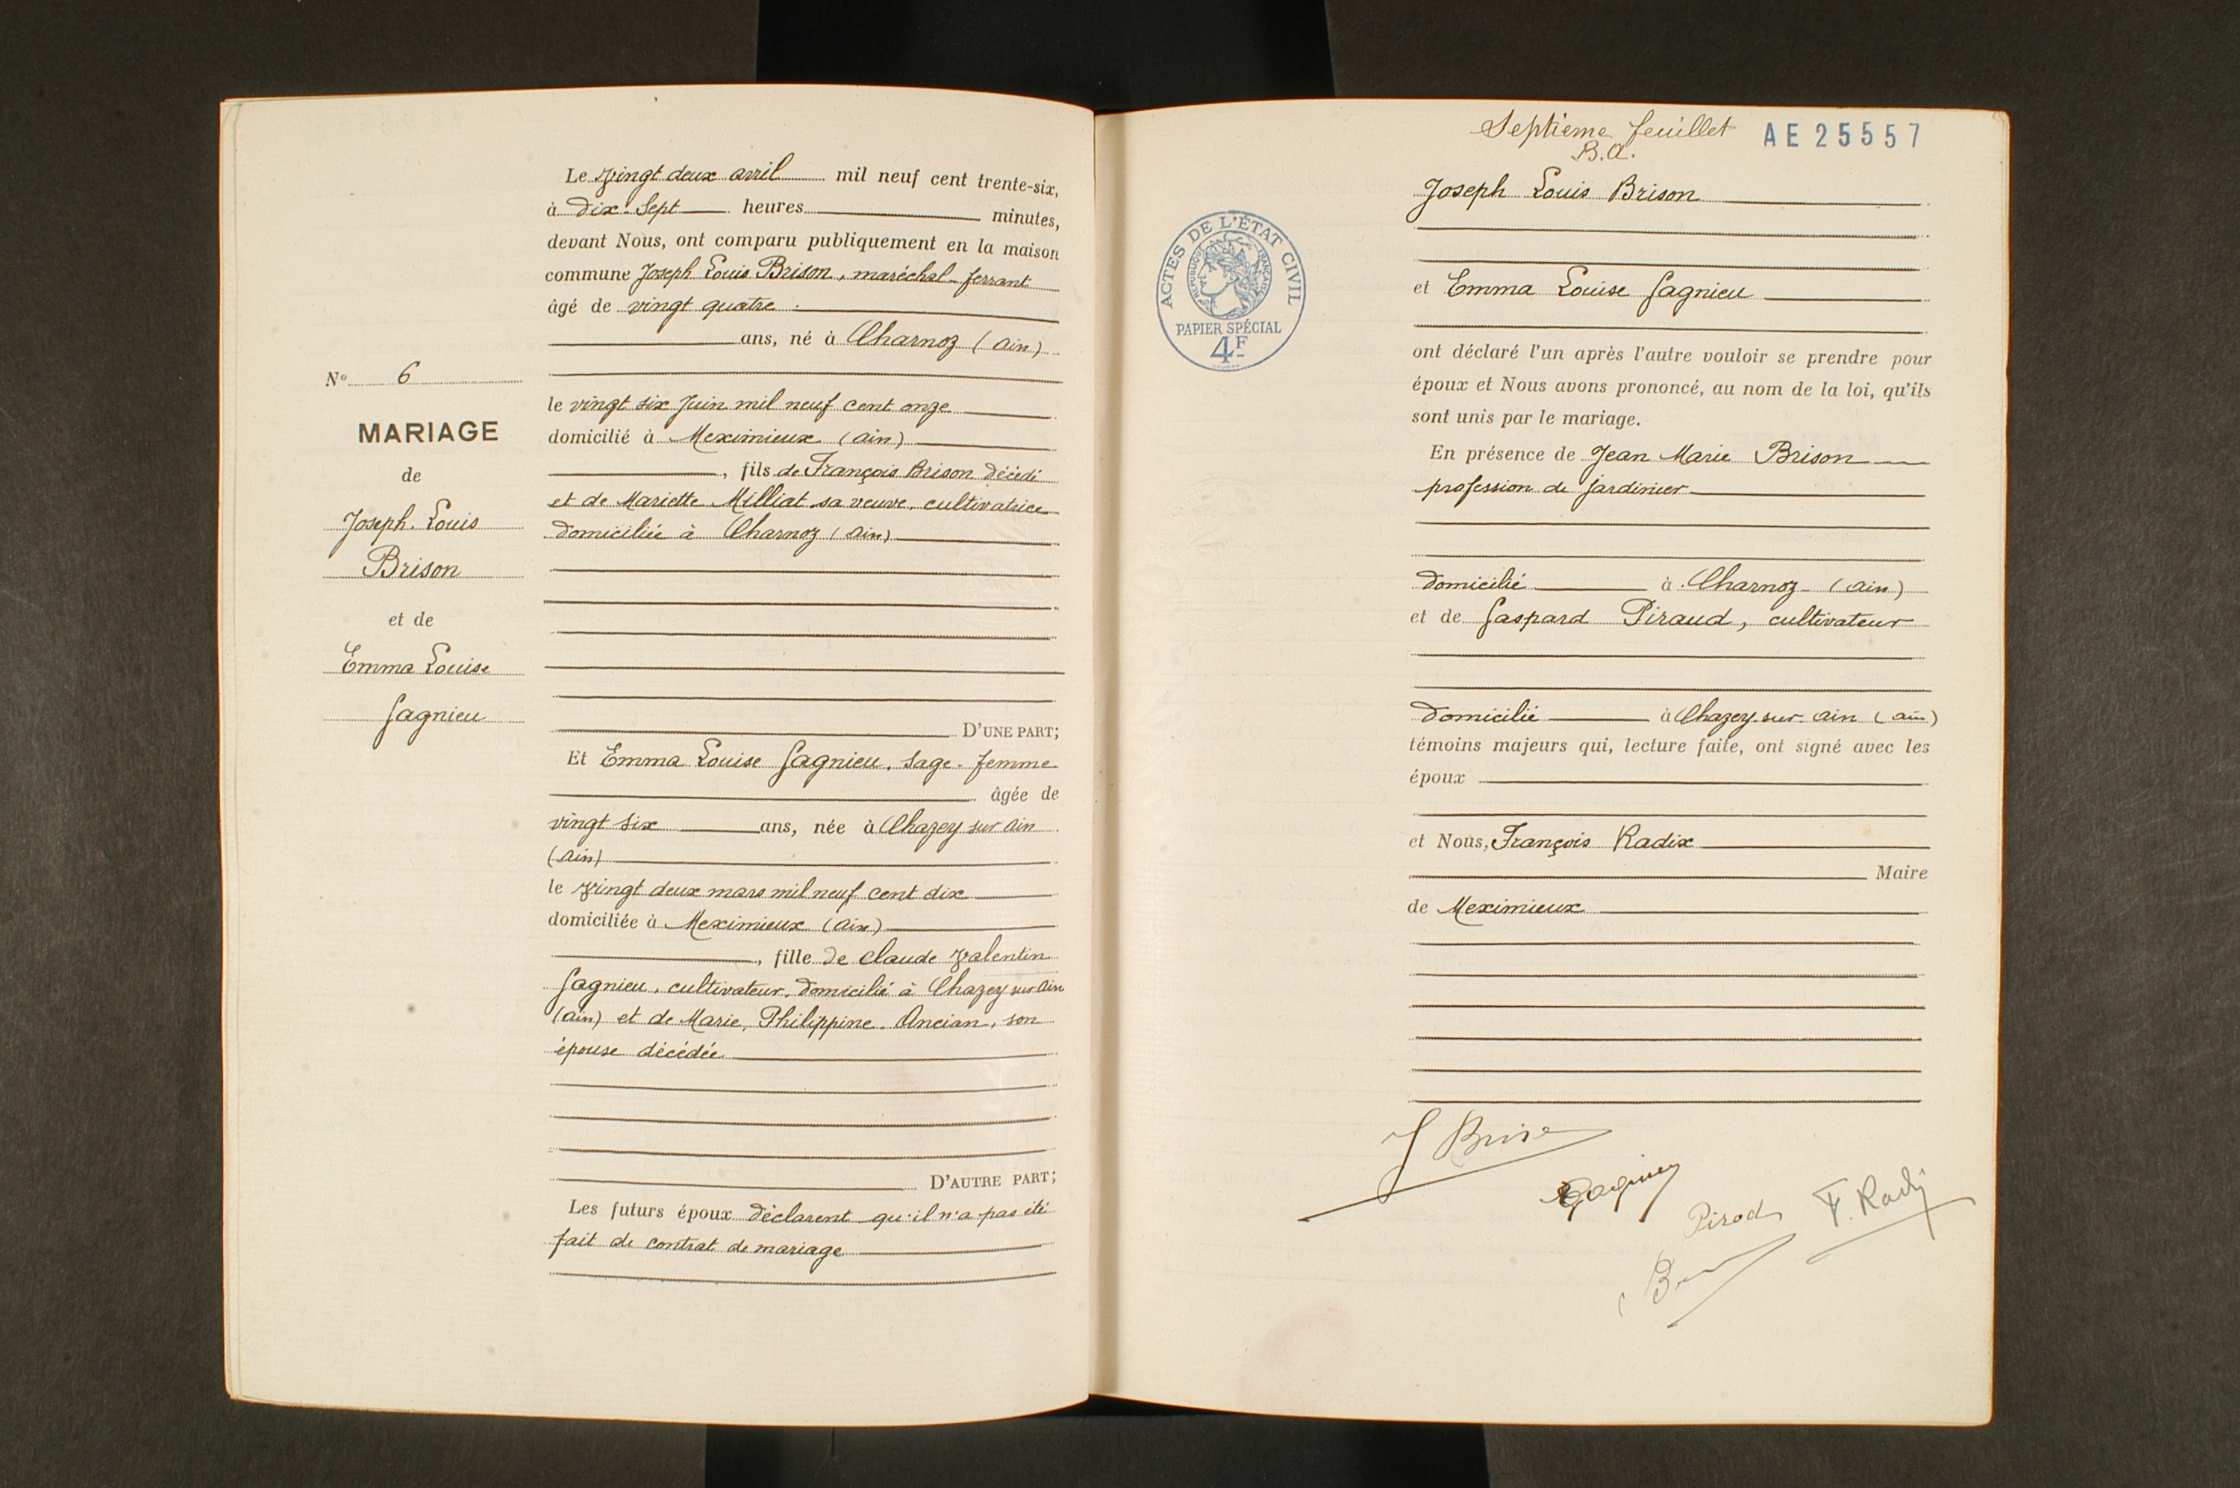 Le vingt deux avril mil neuf cent trente-six,
à dix-sept heures minutes,
devant Nous, ont comparu publiquement en la maison
commune Joseph Louis Brison, maréchal-ferrant
âgé de vingt quatre
ans, né à Charnoz (Ain)
le vingt six Juin mil neuf cent onze
domicilié à Meximieux (Ain)
, fils de François Brison décédé
et de Mariette Milliat sa veuve, cultivatrice
domiciliée à Charnoz (Ain)
D'UNE PART;
Et Emma Louise Gagnieu, Sage-femme
âgée de
vingt six ans, née à Chazey sur Ain
(Ain)
le vingt deux mars mil neuf cent dix
domiciliée à Meximieux (Ain)
, fille de Claude Valentin
Gagnieu, cultivateur, domicilié à Chazey sur Ain
(Ain) et de Marie, Philippine Ancian, son
épouse décédée
D'AUTRE PART;
Les futurs époux déclarent qu'il n'a pas été
fait de contrat de mariage
N° 6
MARIAGE
de
Joseph Louis
Brison
et de
Emma Louise
Gagnieu
Septième feuillet AE 25557
B.A.
ACTES DE L'ÉTAT CIVIL
RÉPUBLIQUE FRANÇAISE
PAPIER SPÉCIAL
4F
Joseph Louis Brison
et Emma Louise Gagnieu
ont déclaré l'un après l'autre vouloir se prendre pour
époux et Nous avons prononcé, au nom de la loi, qu'ils
sont unis par le mariage.
En présence de Jean Marie Brison
profession de Jardinier
domicilié à Charnoz (Ain)
et de Gaspard Piraud, cultivateur
domicilié à Chazey-sur-Ain (Ain)
témoins majeurs qui, lecture faite, ont signé avec les
époux
et Nous, François Radix
Maire
de Meximieux
J Brison
Gagnieu
Pirod F. Radix